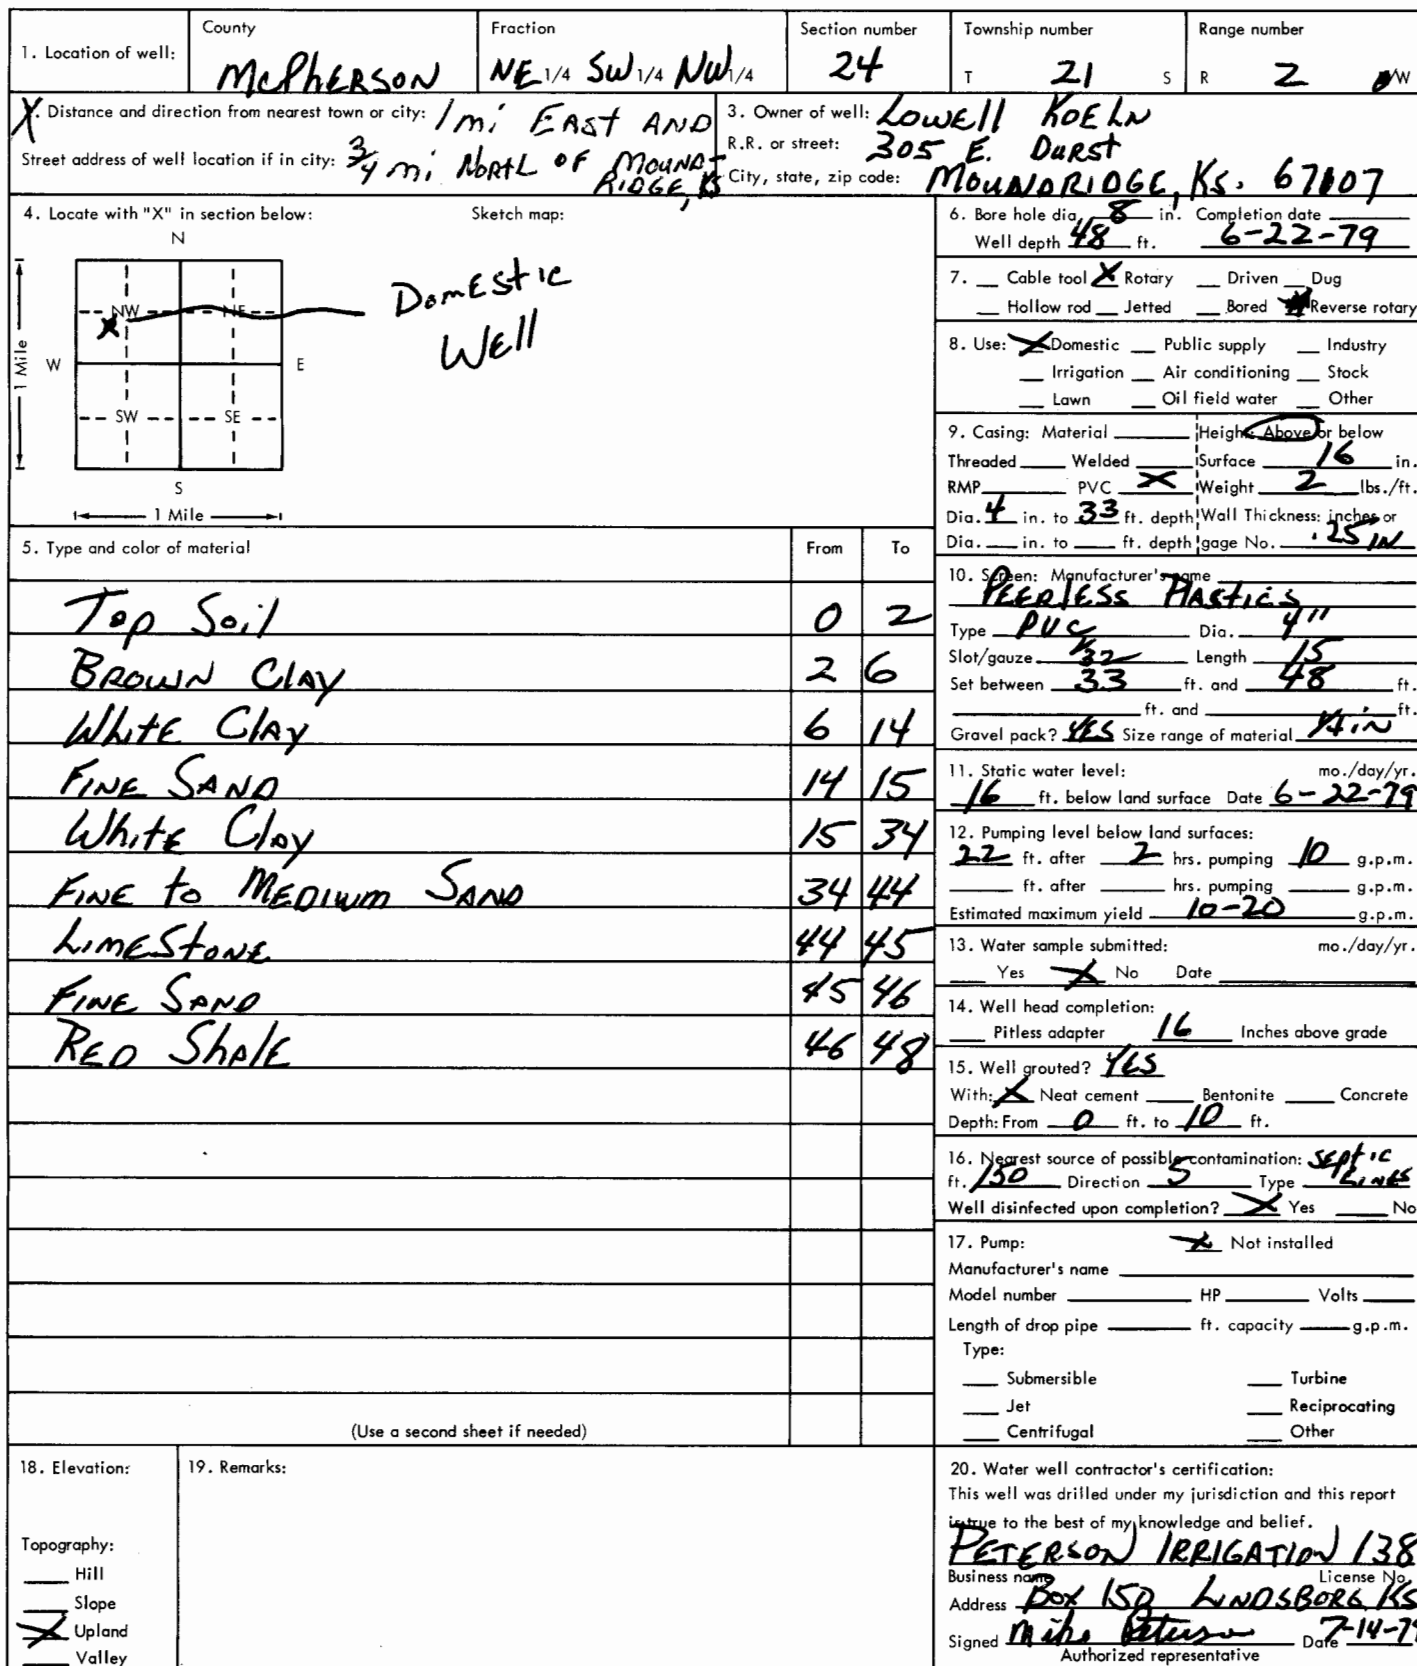 1. Location of well: County McPherson Fraction NE 1/4 SW 1/4 NW 1/4 Section number 24 Township number T 21 S Range number R 2 W
Distance and direction from nearest town or city: 1 mi East and
Street address of well location if in city: 3/4 mi North of Mound-
Ridge, Ks
3. Owner of well: Lowell Koeln
R.R. or street: 305 E. Durst
City, state, zip code: Moundridge, Ks. 67107
4. Locate with "X" in section below: Sketch map:
N
NW NE
X
W E
SW SE
S
1 Mile
1 Mile
Domestic
Well
5. Type and color of material From To
Top Soil 0 2
Brown Clay 2 6
White Clay 6 14
Fine Sand 14 15
White Clay 15 34
Fine to Medium Sand 34 44
Limestone 44 45
Fine Sand 45 46
Red Shale 46 48
(Use a second sheet if needed)
6. Bore hole dia. 8 in. Completion date
Well depth 48 ft. 6-22-79
7. __ Cable tool X Rotary __ Driven __ Dug
__ Hollow rod __ Jetted __ Bored Reverse rotary
8. Use: X Domestic __ Public supply __ Industry
__ Irrigation __ Air conditioning __ Stock
__ Lawn __ Oil field water __ Other
9. Casing: Material ____ Height: Above or below
Threaded ____ Welded ____ Surface 16 in.
RMP ____ PVC X Weight 2 lbs./ft.
Dia. 4 in. to 33 ft. depth Wall Thickness: inches or
Dia. __ in. to __ ft. depth gage No. .25 in
10. Screen: Manufacturer's name
Peerless Plastics
Type PVC Dia. 4"
Slot/gauze 1/32 Length 15
Set between 33 ft. and 48 ft.
____ ft. and ____ ft.
Gravel pack? Yes Size range of material 1/4 in
11. Static water level: mo./day/yr.
16 ft. below land surface Date 6-22-79
12. Pumping level below land surfaces:
22 ft. after 2 hrs. pumping 10 g.p.m.
____ ft. after ____ hrs. pumping ____ g.p.m.
Estimated maximum yield 10-20 g.p.m.
13. Water sample submitted: mo./day/yr.
__ Yes X No Date ____
14. Well head completion:
__ Pitless adapter 16 Inches above grade
15. Well grouted? Yes
With: X Neat cement ____ Bentonite ____ Concrete
Depth: From 0 ft. to 10 ft.
16. Nearest source of possible contamination: Septic
ft. 150 Direction S Type Lines
Well disinfected upon completion? X Yes ____ No
17. Pump: X Not installed
Manufacturer's name ____
Model number ____ HP ____ Volts ____
Length of drop pipe ____ ft. capacity ____ g.p.m.
Type:
__ Submersible __ Turbine
__ Jet __ Reciprocating
__ Centrifugal __ Other
18. Elevation:
Topography:
__ Hill
__ Slope
X Upland
__ Valley
19. Remarks:
20. Water well contractor's certification:
This well was drilled under my jurisdiction and this report
is true to the best of my knowledge and belief.
Peterson Irrigation 138
Business name License No.
Address Box 150 Lindsborg Ks
Signed Mike Peterson Date 7-14-79
Authorized representative